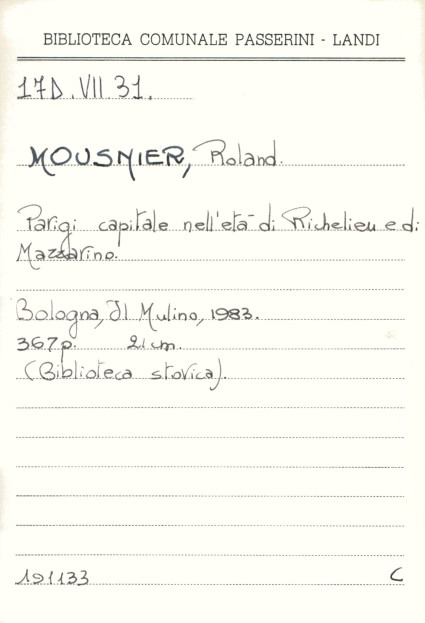 BIBLIOTECA COMUNALE PASSERINI - LANDI
17D.VII.31.
MOUSNIER, Roland.
Parigi capitale nell'età di Richelieu e di
Mazzarino.
Bologna, Il Mulino, 1983.
367p. 21 cm.
(Biblioteca storica).
191133 C